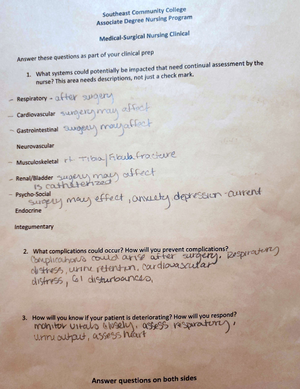 Southeast Community College
Associate Degree Nursing Program
Medical-Surgical Nursing Clinical
Answer these questions as part of your clinical prep
1. What systems could potentially be impacted that need continual assessment by the
nurse? This area needs descriptions, not just a check mark.
- Respiratory - after surgery
- Cardiovascular surgery may affect
- Gastrointestinal surgery may affect
Neurovascular
- Musculoskeletal rt Tibia/fibula fracture
- Renal/Bladder surgery may affect
is catheterized
- Psycho-Social
surgery may effect, anxiety depression-current
Endocrine
Integumentary
2. What complications could occur? How will you prevent complications?
Complications could arise after surgery. Respiratory
distress, urine retention, cardiovascular
distress, GI disturbances,
3. How will you know if your patient is deteriorating? How will you respond?
monitor vitals closely, assess respiratory,
urine output, assess heart
Answer questions on both sides